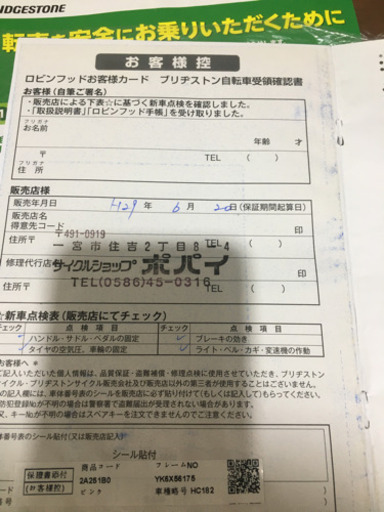 BRIDGESTONE
転車を安全にお乗りいただくために
お客様控
ロビンフッドお客様カード ブリヂストン自転車受領確認書
お客様(自筆ご署名)
・販売店による下表☆に基づく新車点検を確認しました。
・「取扱説明書」「ロビンフッド手帳」を受け取りました。
フリガナ
お名前
年齢 才
〒 TEL ( )
フリガナ
住所
印
販売店様
販売年月日 H29年 6月 20日(保証期間起算日)
販売店名
得意先コード 印
〒491-0919
住所〒 一宮市住吉2丁目8-4
TEL ( )
修理代行店 サイクルショップ ポパイ 印
住所〒 TEL(0586)45-0316
☆新車点検表(販売店にてチェック)
チェック 点検項目 チェック 点検項目
✓ ハンドル・サドル・ペダルの固定 ✓ ブレーキの効き
✓ タイヤの空気圧、車輪の固定 ✓ ライト・ベル・カギ・変速機の作動
お客様へ
ご記入いただいた個人情報は、品質保証・盗難補償・修理点検に使用させていただき、ブリヂストン
サイクル・ブリヂストンサイクル販売会社及び販売店以外の第三者が使用することはございません。
の記入欄には、車体番号表のシールを販売店に必ず貼り付けて(もしくは記入して)もらってください。
防犯登録Noが不明の場合は警察署で盗難届出が受付けられない場合があります。
す。又、キーNoが不明の場合はスペアキーを注文できない場合がありますのでご注意ください。
車体番号表のシール貼付(又は販売店記入)
シール貼付
保証書添付
(お客様控)
商品コード フレームNO
2A261B0 YK6X56175
ピンク 車種略号 HC182